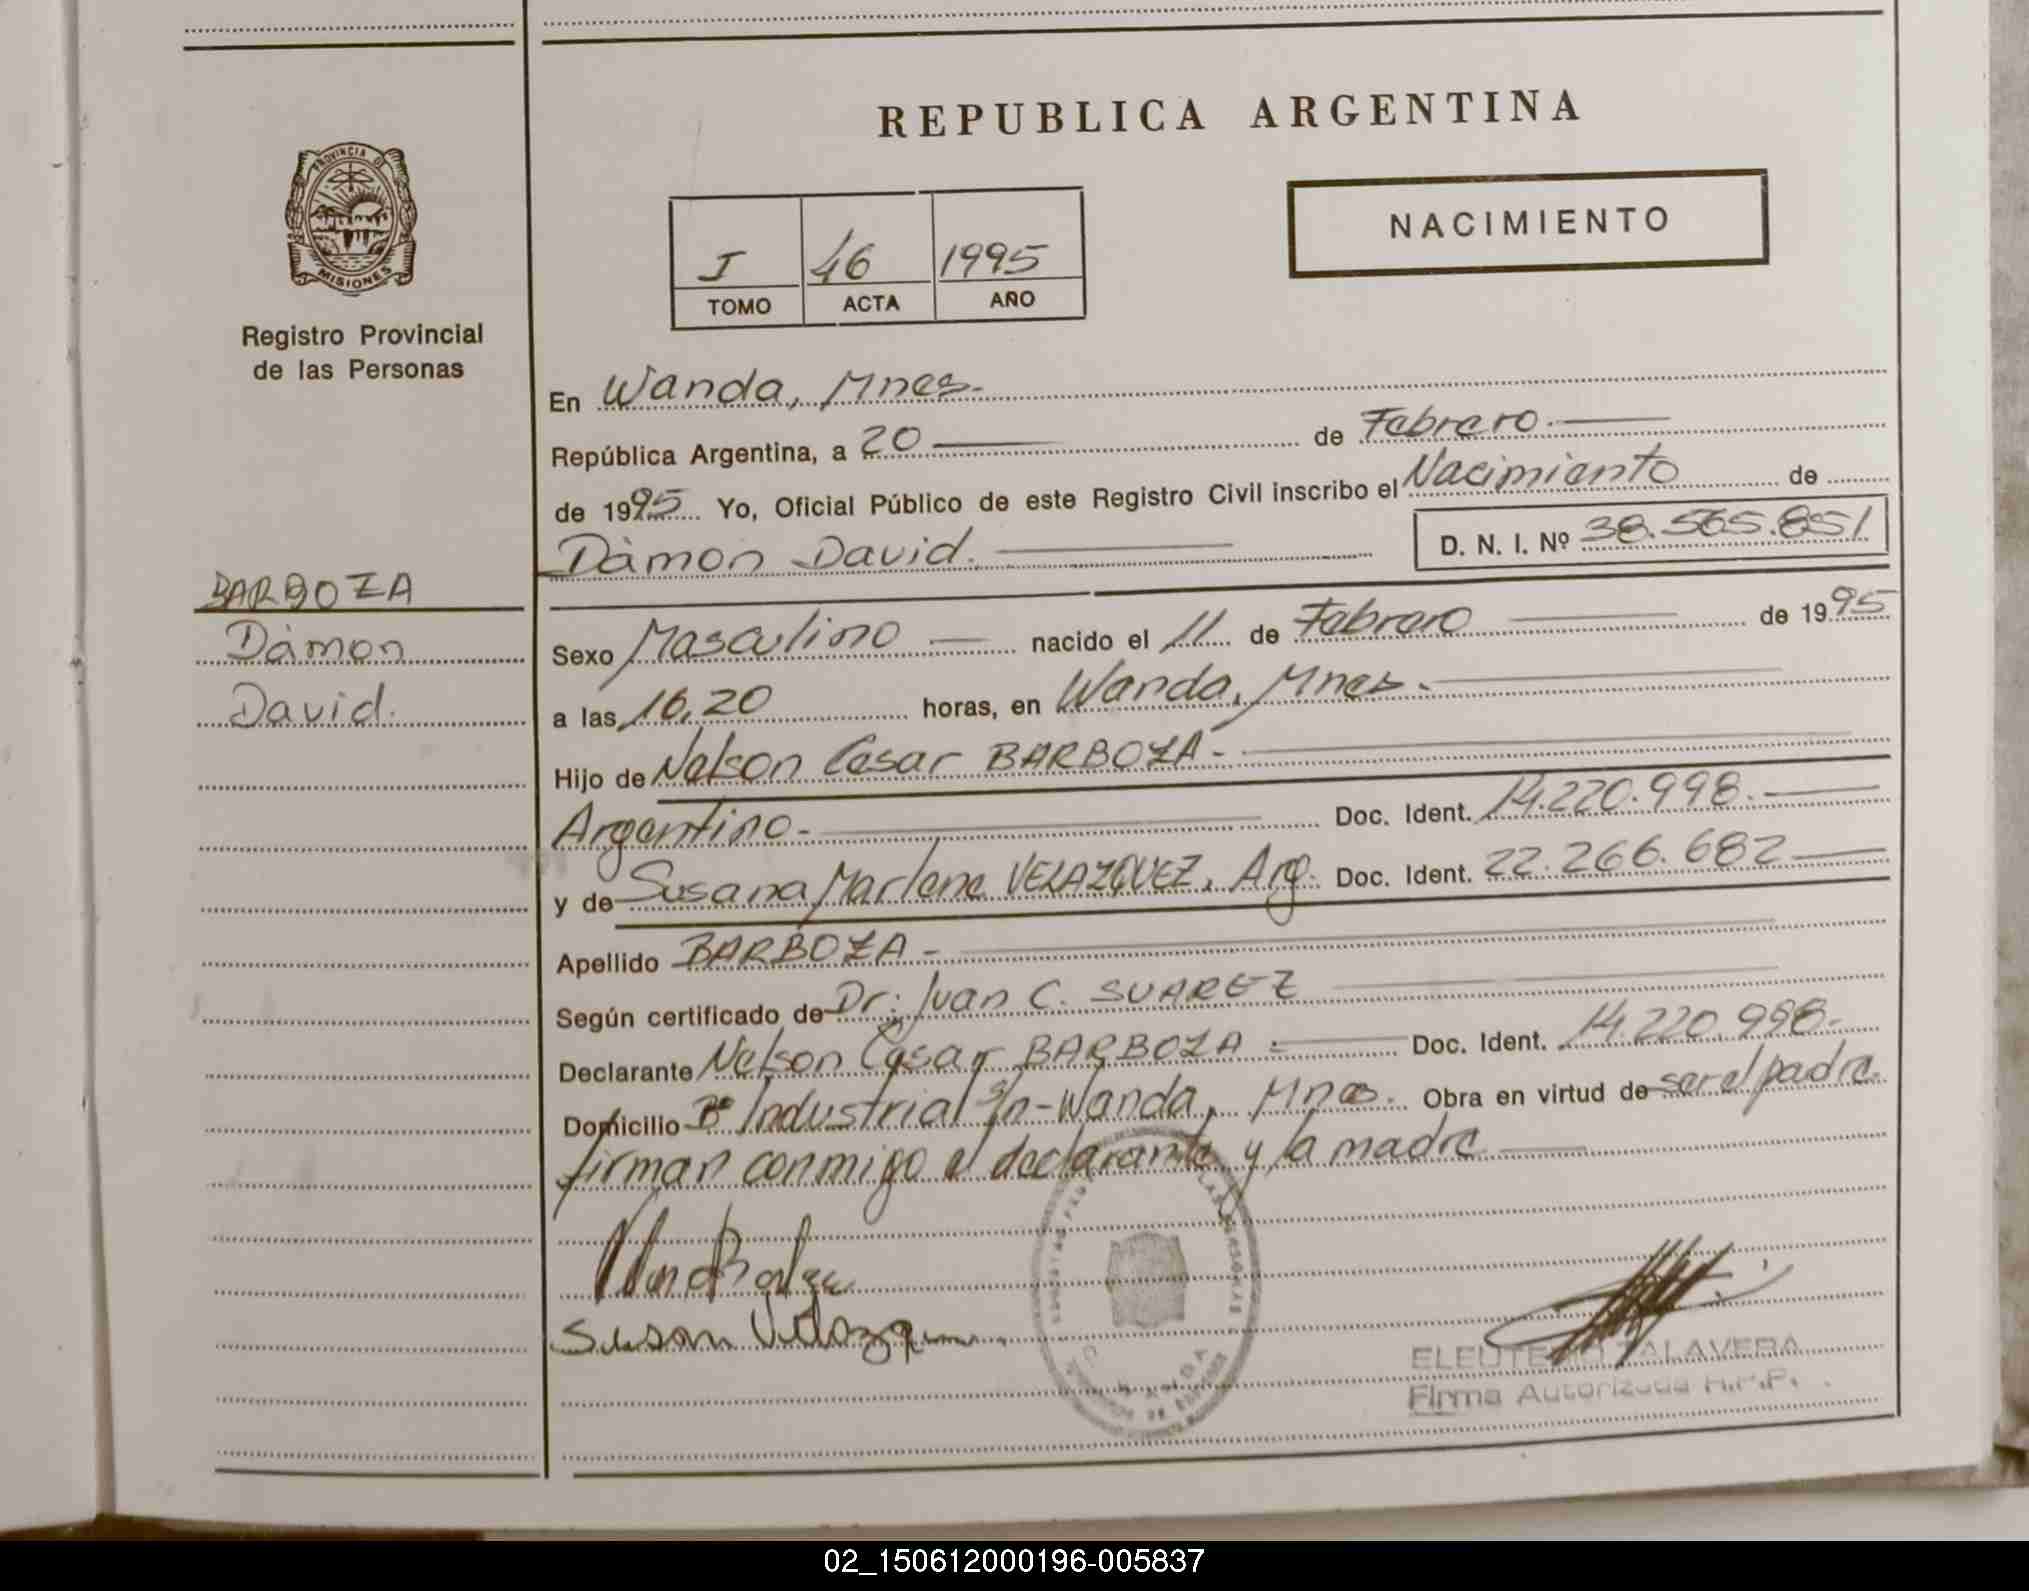 REPUBLICA ARGENTINA
PROVINCIA DE
MISIONES
Registro Provincial
de las Personas
NACIMIENTO
I 46 1995
TOMO ACTA AÑO
En Wanda, Mnes.-
República Argentina, a 20 de Febrero.
de 1995 Yo, Oficial Público de este Registro Civil inscribo el Nacimiento de
Dàmon David. D. N. I. Nº 38.565.851
BARBOZA
Dàmon
David.
Sexo Masculino nacido el 11 de Febrero de 1995
a las 16,20 horas, en Wanda, Mnes.-
Hijo de Nelson Cesar BARBOZA-
Argentino.- Doc. Ident. 14.220.998.
y de Susana Marlene VELAZQUEZ, Arg. Doc. Ident. 22.266.682
Apellido BARBOZA-
Según certificado de Dr: Juan C. SUAREZ
Declarante Nelson Cesar BARBOZA Doc. Ident. 14.220.998.-
Domicilio Bº Industrial S/n-Wanda, Mnes. Obra en virtud de ser el padre.
firman conmigo el declarante y la madre
Susan
ELEUTERIO TALAVERA
Firma Autorizada R.P.P.
02_150612000196-005837